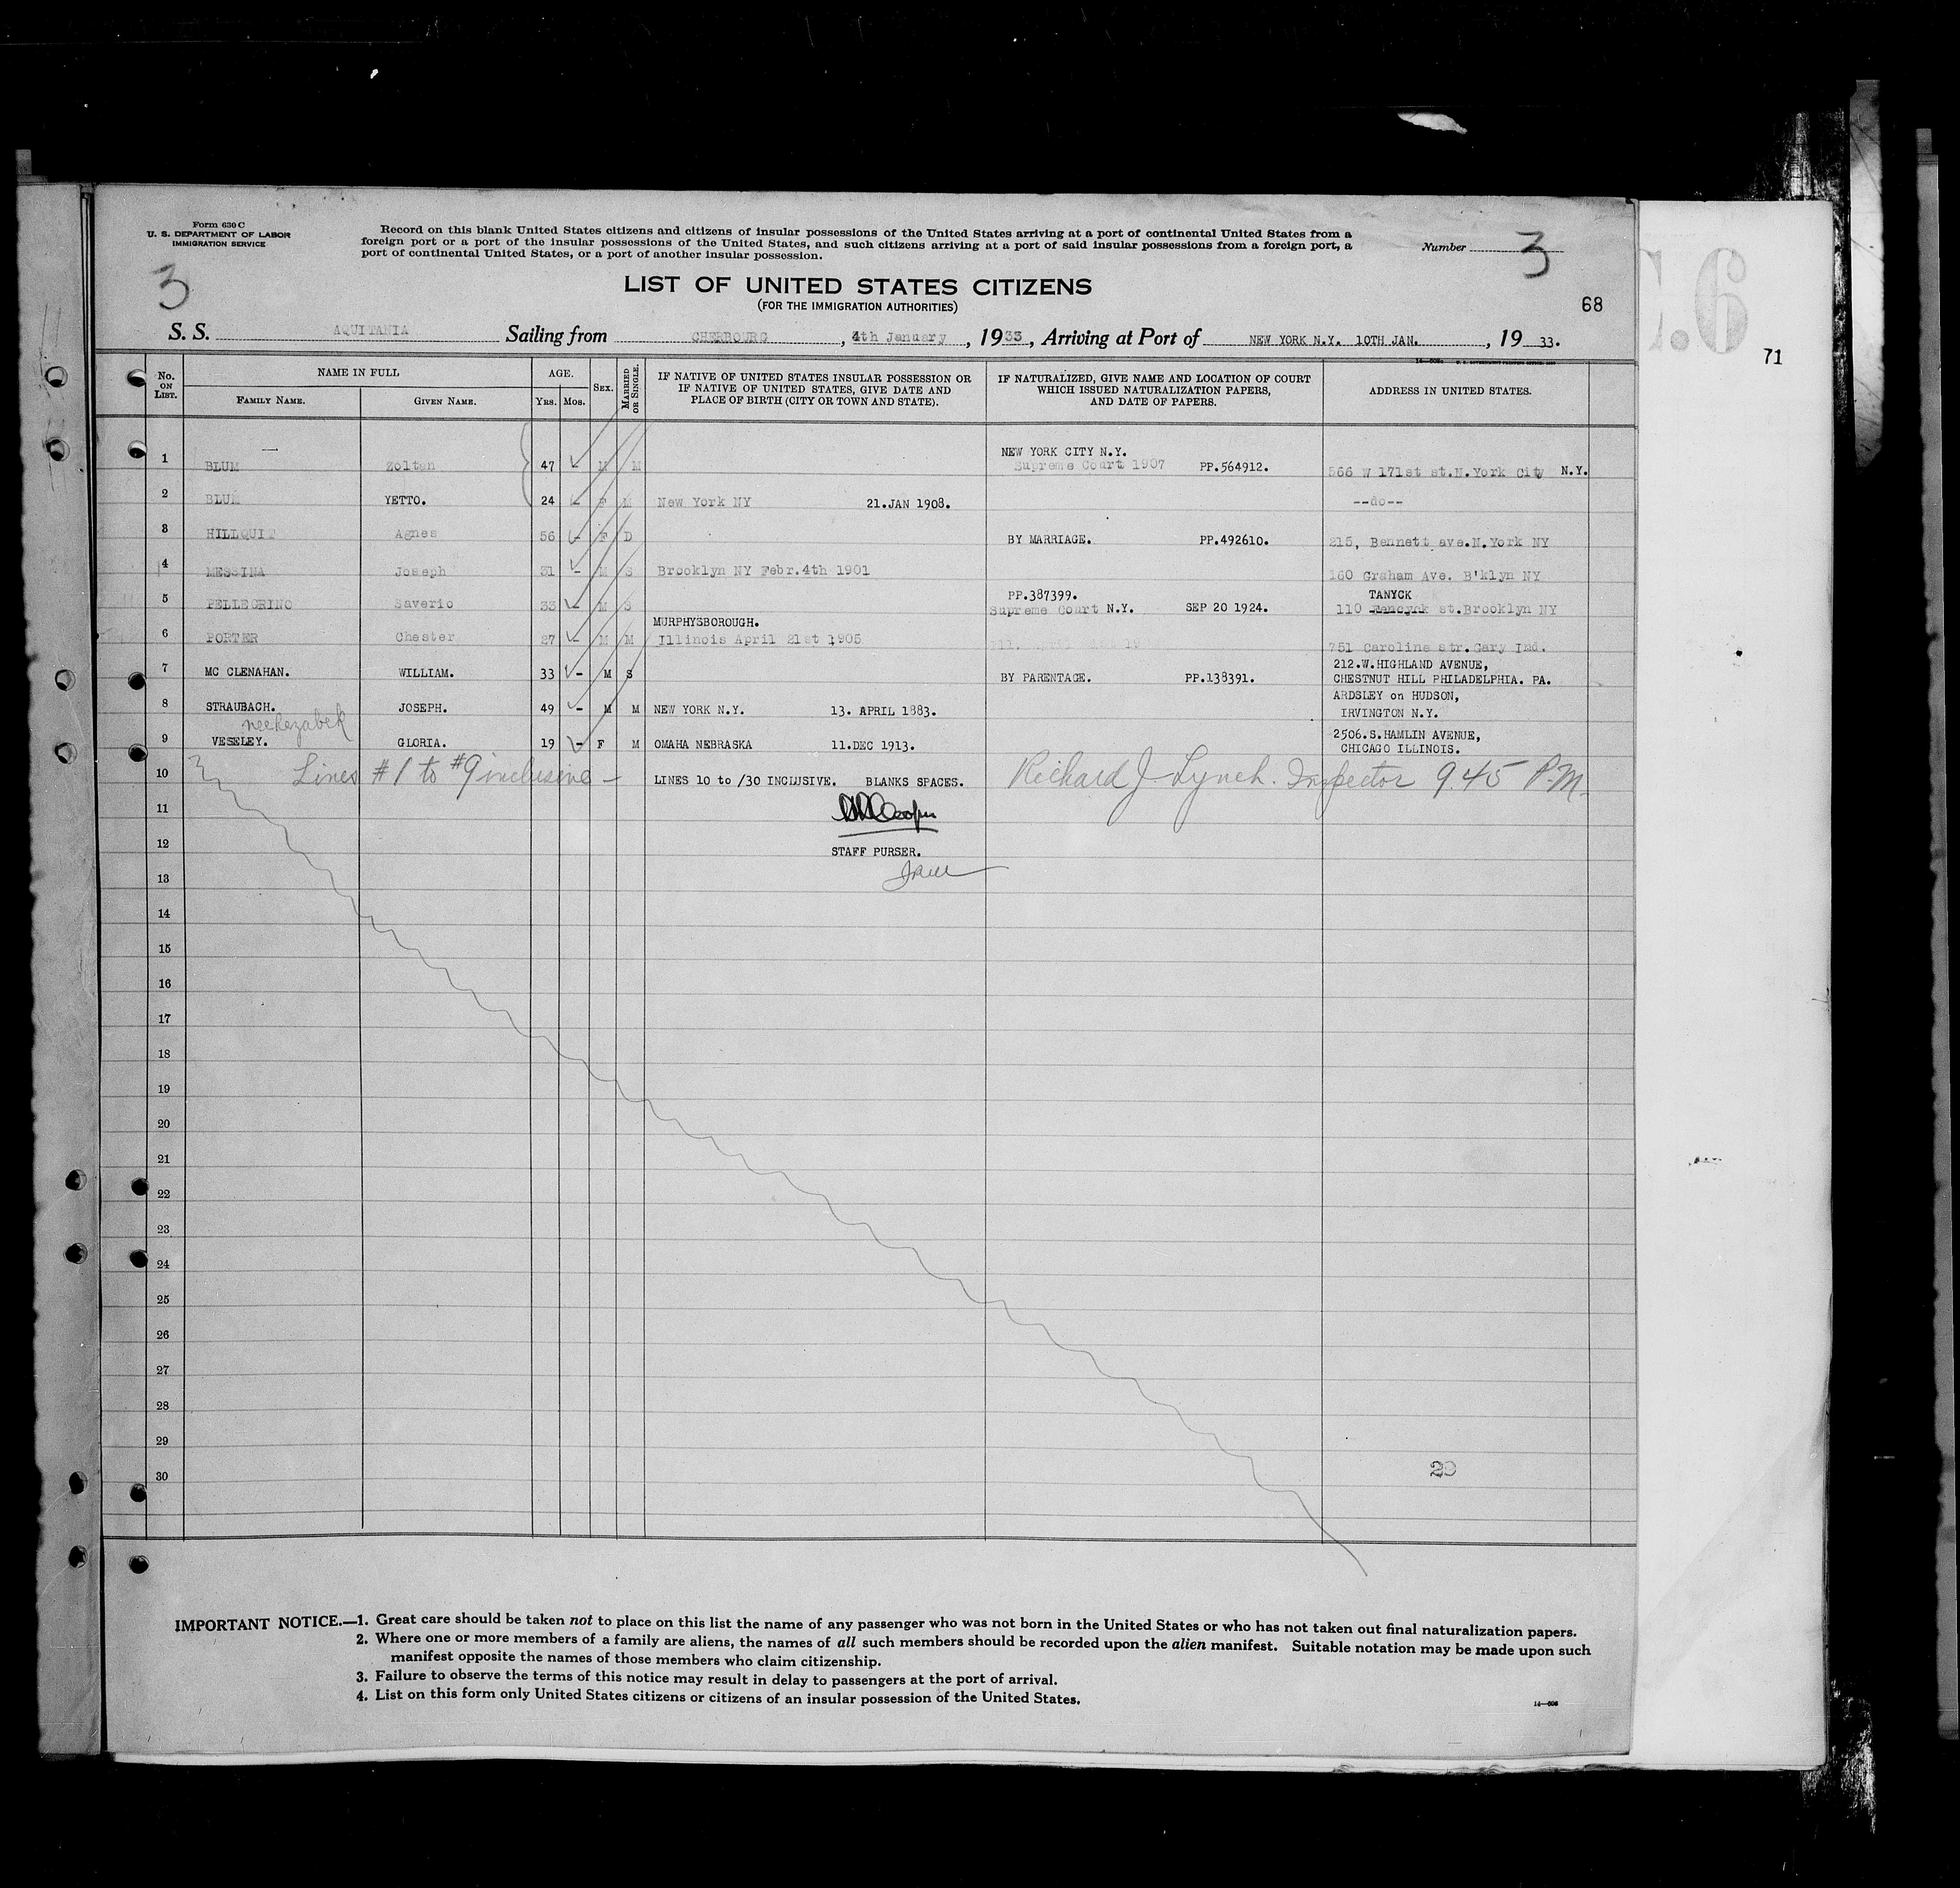 Form 630 C
U. S. DEPARTMENT OF LABOR
IMMIGRATION SERVICE
Record on this blank United States citizens and citizens of insular possessions of the United States arriving at a port of continental United States from a
foreign port or a port of the insular possessions of the United States, and such citizens arriving at a port of said insular possessions from a foreign port, a
port of continental United States, or a port of another insular possession.
Number 3
3
LIST OF UNITED STATES CITIZENS
(FOR THE IMMIGRATION AUTHORITIES)
68
S. S. AQUITANIA Sailing from CHERBOURG, 4th January, 1933, Arriving at Port of NEW YORK N.Y. 10TH JAN., 19 33.
71
No. ON LIST. NAME IN FULL FAMILY NAME. GIVEN NAME. AGE. Yrs. Mos. SEX. MARRIED OR SINGLE. IF NATIVE OF UNITED STATES INSULAR POSSESSION OR IF NATIVE OF UNITED STATES, GIVE DATE AND PLACE OF BIRTH (CITY OR TOWN AND STATE). IF NATURALIZED, GIVE NAME AND LOCATION OF COURT WHICH ISSUED NATURALIZATION PAPERS, AND DATE OF PAPERS. ADDRESS IN UNITED STATES.
NEW YORK CITY N.Y.
1 BLUM Zoltan 47 - M M Supreme Court 1907 PP.564912. 566 W 171st st.N.York City N.Y.
2 BLUM YETTO. 24 - F M New York NY 21.JAN 1908. --do--
3 HILLQUIT Agnes 56 - F D BY MARRIAGE. PP.492610. 215, Bennett ave.N.York NY
4 MESSINA Joseph 31 - M S Brooklyn NY Febr.4th 1901 160 Graham Ave. B'klyn NY
PP.387399. TANYCK
5 PELLEGRINO Saverio 33 - M S Supreme Court N.Y. SEP 20 1924. 110 st.Brooklyn NY
MURPHYSBOROUGH.
6 PORTER Chester 27 - M M Illinois April 21st 1905 751 Caroline str.Gary Ind.
212.W.HIGHLAND AVENUE,
7 MC CLENAHAN. WILLIAM. 33 - M S BY PARENTAGE. PP.138391. CHESTNUT HILL PHILADELPHIA. PA.
ARDSLEY on HUDSON,
8 STRAUBACH. JOSEPH. 49 - M M NEW YORK N.Y. 13. APRIL 1883. IRVINGTON N.Y.
2506.S.HAMLIN AVENUE,
9 VESELEY. GLORIA. 19 - F M OMAHA NEBRASKA 11.DEC 1913. CHICAGO ILLINOIS.
10 Lines #1 to #9 inclusive - LINES 10 to /30 INCLUSIVE. BLANKS SPACES. Richard J. Lynch. Inspector 9.45 P.M.
11
12 STAFF PURSER.
13
14
15
16
17
18
19
20
21
22
23
24
25
26
27
28
29
30 29
IMPORTANT NOTICE.—1. Great care should be taken not to place on this list the name of any passenger who was not born in the United States or who has not taken out final naturalization papers.
2. Where one or more members of a family are aliens, the names of all such members should be recorded upon the alien manifest. Suitable notation may be made upon such
manifest opposite the names of those members who claim citizenship.
3. Failure to observe the terms of this notice may result in delay to passengers at the port of arrival.
4. List on this form only United States citizens or citizens of an insular possession of the United States.